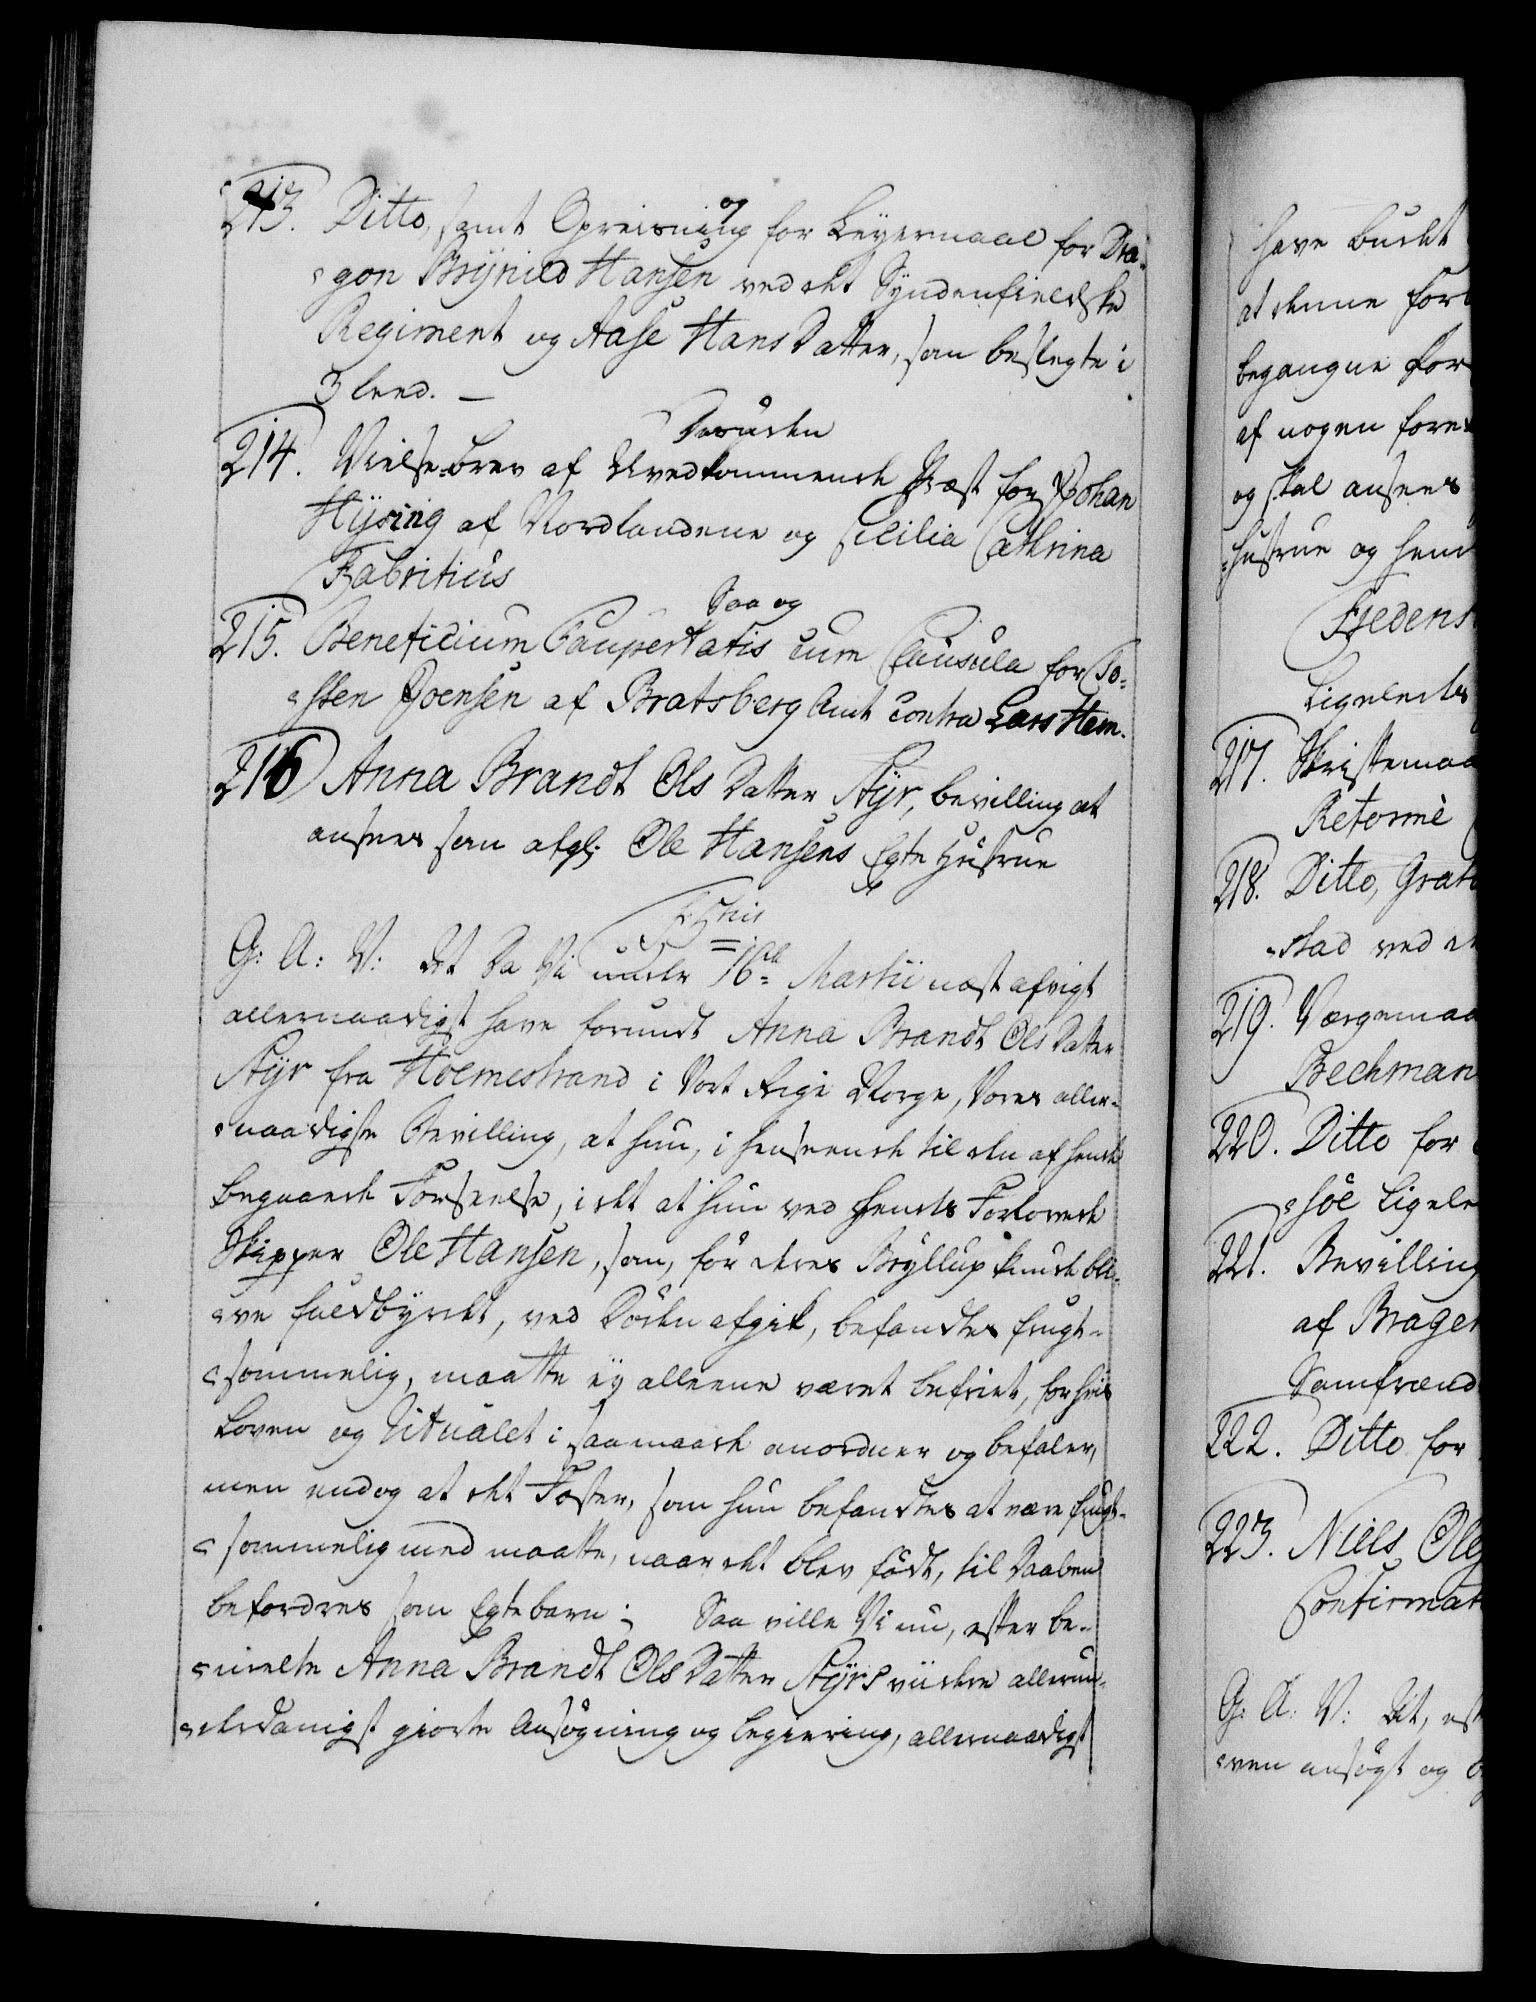 213. Ditto, samt Opreisning for Leyermaal for Dra-
og
gon Brynild Hansen ved det Syndenfieldske
Regiment og Aase Hans Datter, som beslegte i
3 leed. —
Desuden
214. Vielse-brev af Uvedkommende Præst for Johan
Hysing af Nordlandene og Cicilia Cathrina
Fabritius
Saa og
215. Beneficium Paupertatis cum Clausula for To-
sten Joensen af Bratsberg Amt contra Lars Hem.
216 Anna Brandt Ols Datter Styr, bevilling at
ansees som afgl: Ole Hansens Egte Hustrue
G: A: V: At Da Vi under 16de Martii næst afvigt
allernaadigst have forundt Anna Brandt Ols Datter
Styr fra Holmestrand i Vort Rige Norge, Vores aller-
naadigste Bevilling, at hun, i henseende til den af hende
begaaede Forseelse, i det at hun ved hendes Forlovede
Skipper Ole Hansen, som, før deres Bryllup kunde bli-
ve fuldbyrdet, ved Døden afgik, befandtes frugt-
sommelig, maatte ey alleene været befriet, for hvis
Loven og Ritualet i saa maade anordner og befaler,
men endog at det Foster, som hun befandtes at være frugt-
sommelig med maatte, naar det blev født, til Daaben
befordres som Egte barn; Saa ville Vi nu, efter be-
meldte Anna Brandt Ols Datter Styrs viidere allerun-
derdanigst giorte Ansøgning og begiering, allernaadigst
have budet
at denne for
begangne For
af nogen fore
og skal ansees
Hustrue og hen
Fredens
Ligeledes
217. Skriftemaa
Reformé
218. Ditto, Grat
stad ved
219. Værgemaa
Bechman
220. Ditto for
søe Ligele
221. Bevilling
af Brager
Samfrænd
222. Ditto for
223. Niels Ole
Confirmat
G: A: V: At, eft
ven ansøgt og b